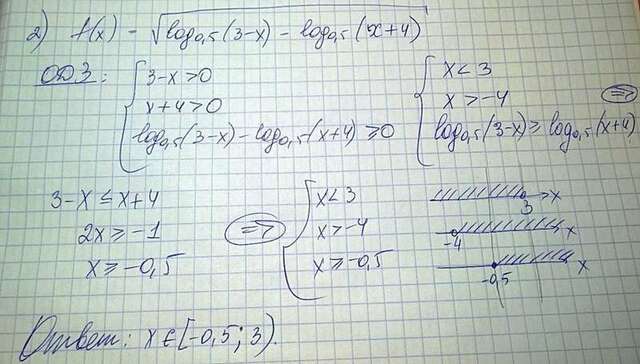 2) f(x) - √(log₀,₅(3-x) - log₀,₅(x+4))
ОДЗ: { 3-x>0
x+4>0
log₀,₅(3-x) - log₀,₅(x+4) ≥ 0
{ x<3
x>-4
log₀,₅(3-x) ≥ log₀,₅(x+4)
=>
3-x ≤ x+4
2x ≥ -1
x ≥ -0,5
=>
{ x<3
x>-4
x ≥ -0,5
3 x
-4 x
-0,5 x
Ответ: x∈[-0,5; 3).